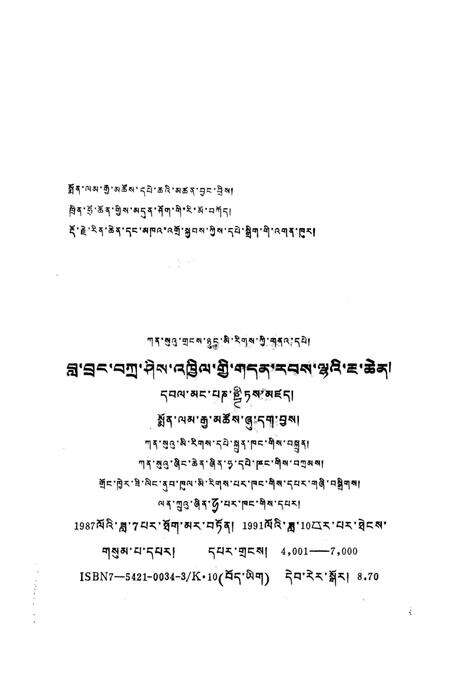 སྨོན་ལམ་རྒྱ་མཚོས་དཔེ་ཆའི་མཚན་བྱང་བྲིས།
ཁྲིན་ཧྲ་ཚོན་གྱིས་མདུན་ཤོག་གི་རི་མོ་བཀོད།
རྡོ་རྗེ་རིན་ཆེན་དང་མཁའ་འགྲོ་སྐྱབས་ཀྱིས་དཔེ་སྒྲིག་གི་འགན་ཁུར།
ཀན་སུའུ་གྲངས་ཉུང་མི་རིགས་ཀྱི་གནའ་དཔེ།
བླ་བྲང་བཀྲ་ཤིས་འཁྱིལ་གྱི་གདན་རབས་ལྷའི་རྔ་ཆེན།
དབལ་མང་པཎྜི་ཏས་མཛད།
སྨོན་ལམ་རྒྱ་མཚོས་ཞུ་དག་བྱས།
ཀན་སུའུ་མི་རིགས་དཔེ་སྐྲུན་ཁང་གིས་བསྐྲུན།
ཀན་སུའུ་ཞིང་ཆེན་ཞིན་ཧྭ་དཔེ་ཁང་གིས་བཀྲམས།
གྲོང་ཁྱེར་ཟི་ལིང་ནུབ་ཁུལ་མི་རིགས་པར་ཁང་གིས་དཔར་གཞི་བསྒྲིགས།
ལན་ཀྲུའུ་ཞིན་ཧྭ་པར་ཁང་གིས་དཔར།
1987ལོའི་ཟླ་7པར་ཐོག་མར་བཏོན། 1991ལོའི་ཟླ་10པར་པར་ཐེངས་
གསུམ་པ་དཔར། དཔར་གྲངས། 4,001—7,000
ISBN7—5421-0034-3/K·10(བོད་ཡིག) དེབ་རེར་སྒོར། 8.70